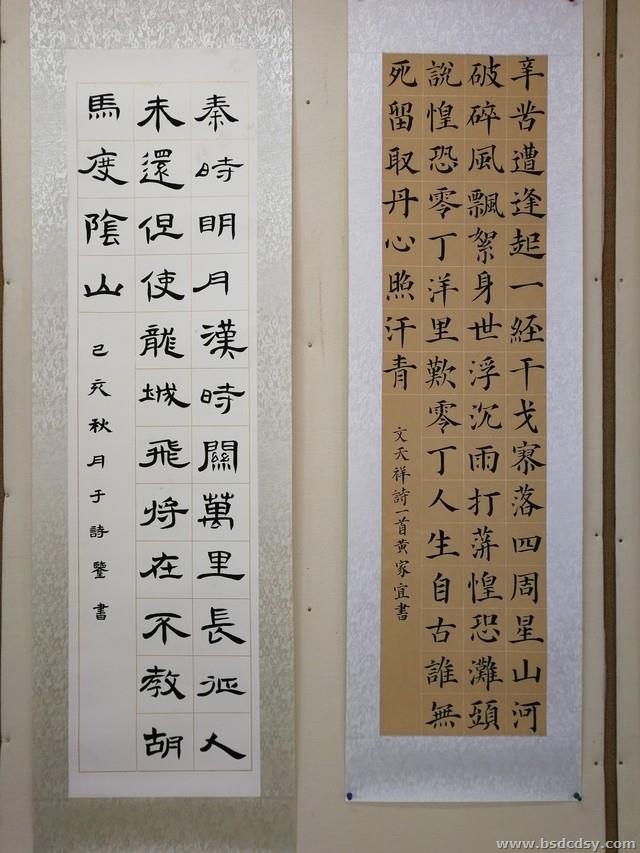 辛苦遭逢起一經干戈寥落四周星山河
破碎風飄絮身世浮沉雨打萍惶恐灘頭
說惶恐零丁洋里歎零丁人生自古誰無
死留取丹心照汗青
文天祥詩一首黃家宜書
秦時明月漢時關萬里長征人
未還但使龍城飛将在不教胡
馬度陰山
己亥秋月于詩鑒書
www.bsdcdsy.com